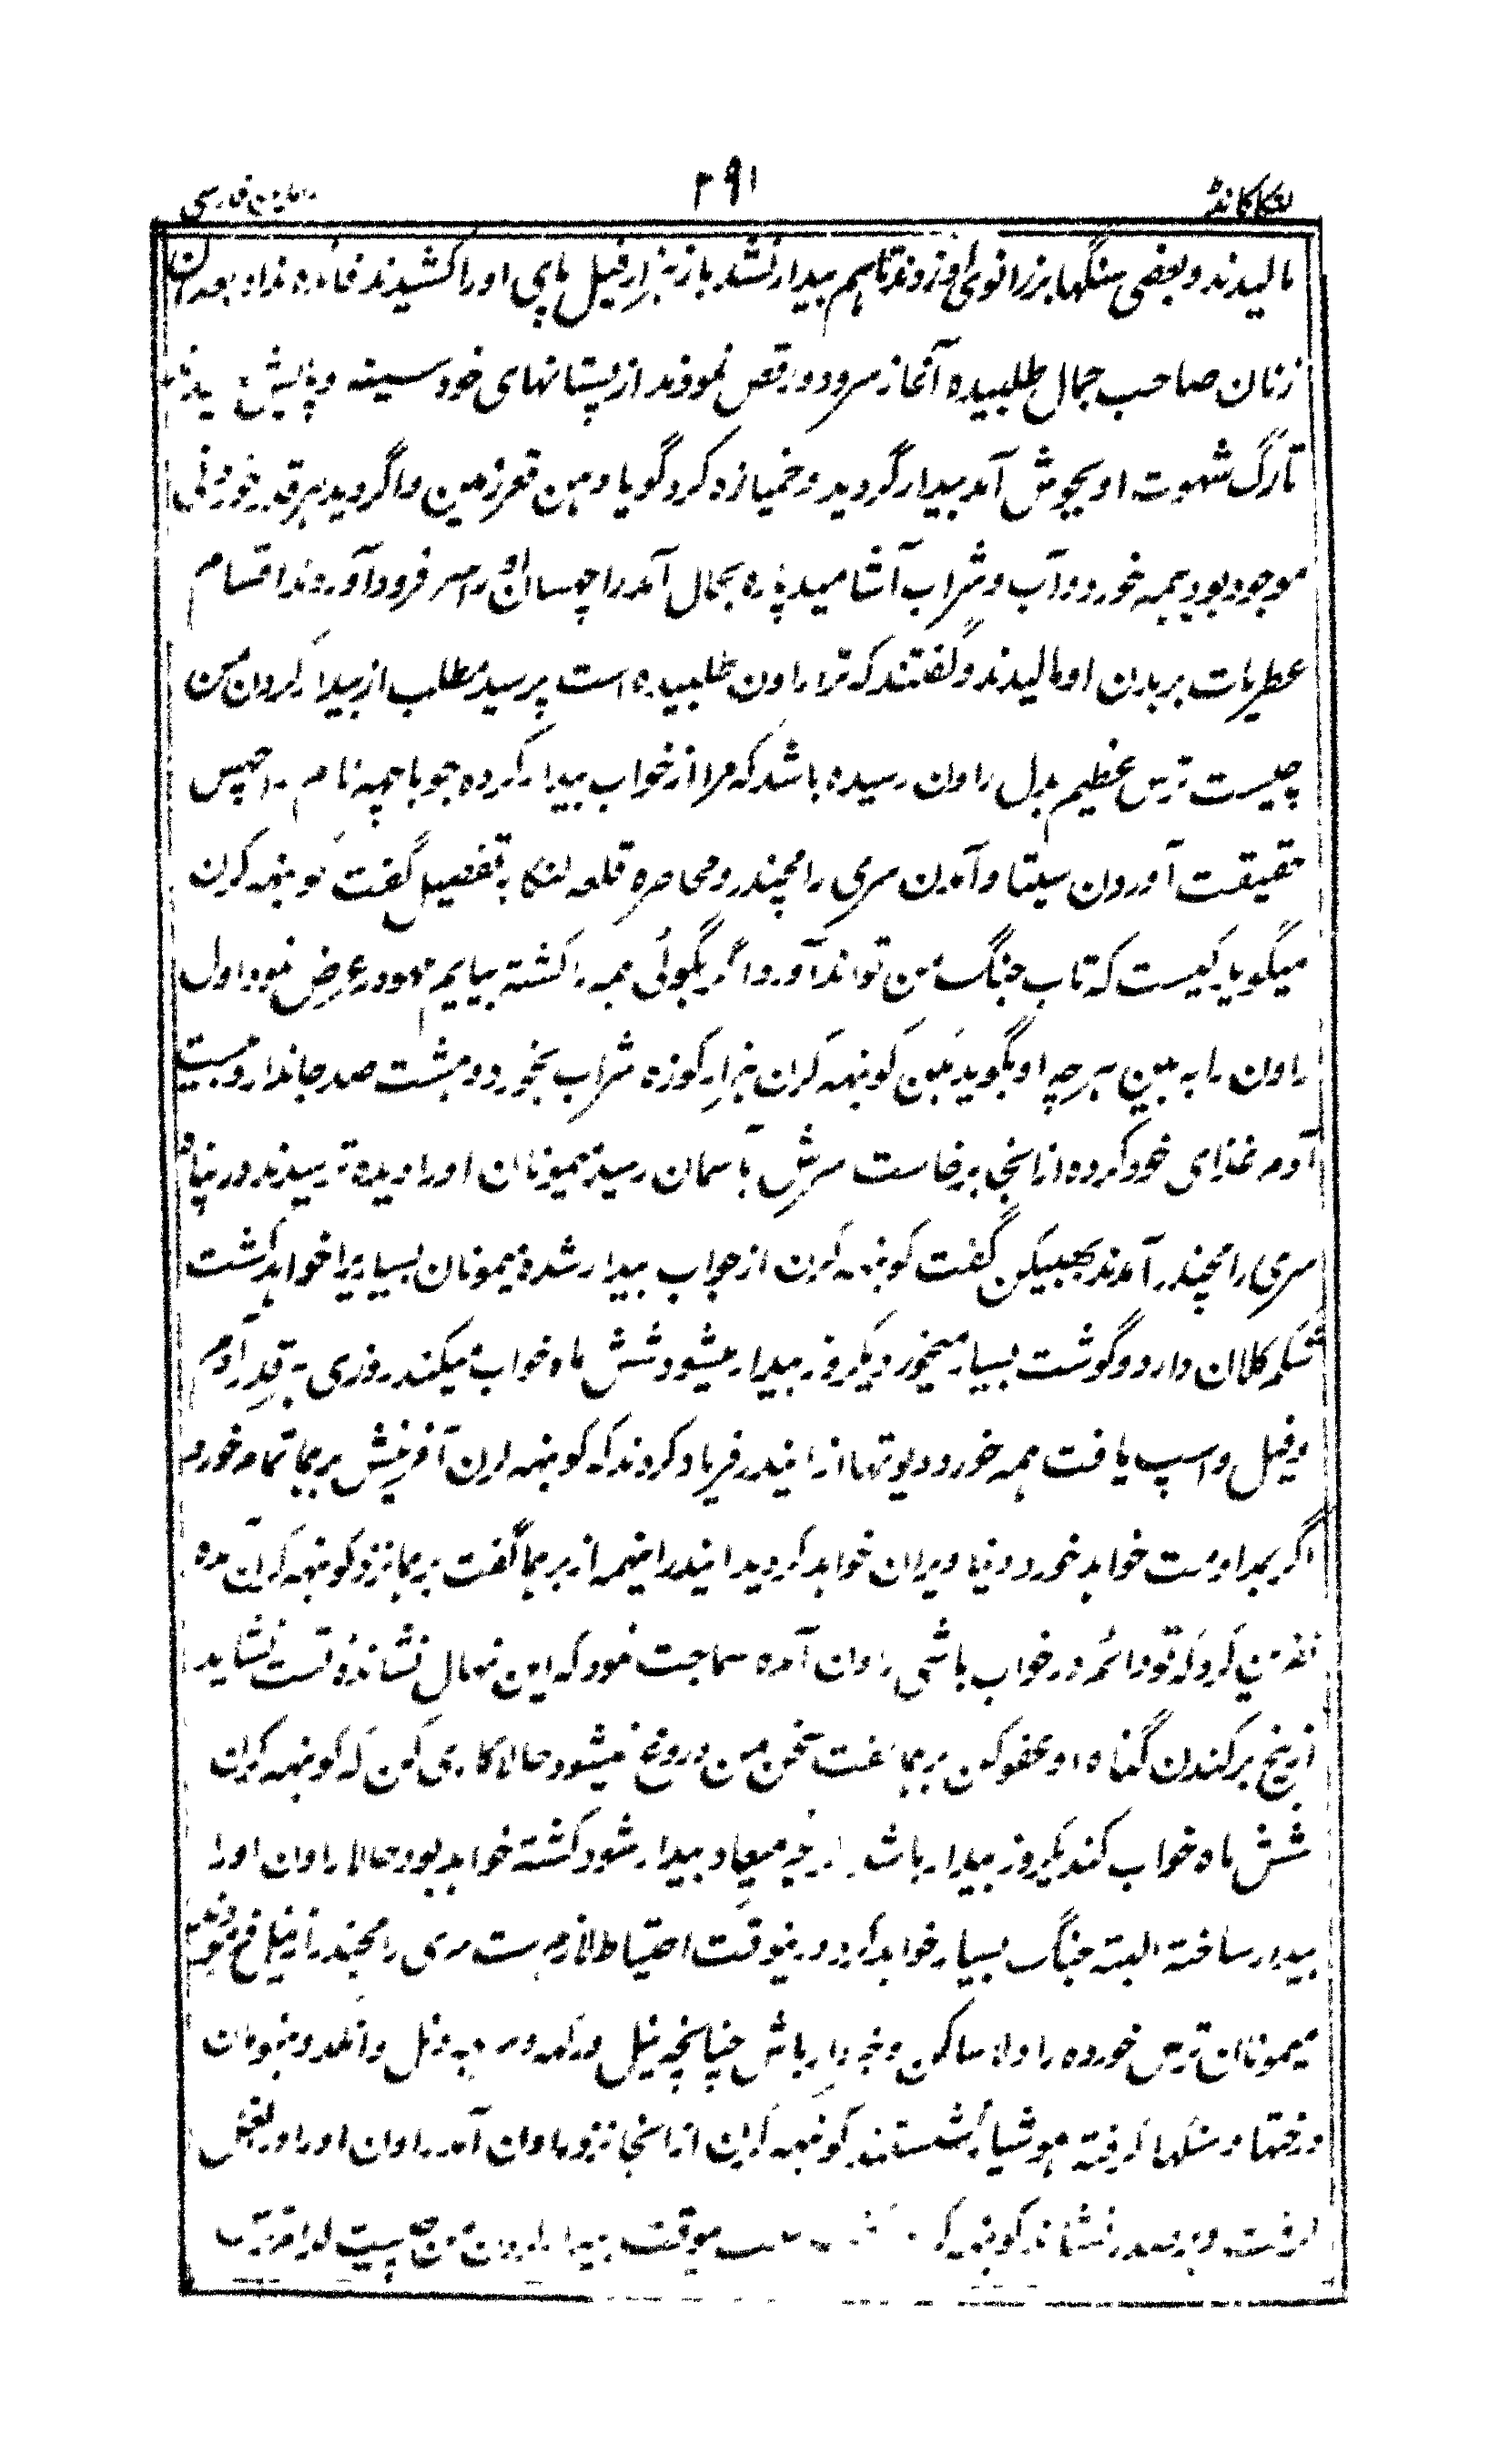 لنکا کانڈ
۲۹۱
راماین فارسی
مالیدند و بعضی سنگها بر زانوی او زدند تا هم بیدار نشد باز هزار فیل بای پی او را کشیدند فائده نداد بعد ازان
زنان صاحب جمال طلبیده آغاز سرود و رقص نمودند از پستانهای خود سینه و پایش
تا رگ شهوت او بجوش آمد بیدار گردید و خمیازه کرد گویا دهن قعر زمین وا گردید هر قدر خوردنی
موجود بود همه خورد و آب و شراب آشامید پاره بحال آمد راچهسان او را سر فرود آوردند اقسام
عطریات بر بدن او مالیدند و گفتند که ترا راون طلبیده است پرسید مطلب از بیدار کردن من
چیست ترس عظیم بدل راون رسیده باشد که مرا از خواب بیدار کرده جوباجهه نام راچهس
حقیقت آوردن سیتا و آمدن سری رامچندر و محاصره قلعه لنکا به تفصیل گفت کونبهه کرن
میگوید کیست که تاب جنگ من تواند آورد اگر بگوئی همه را کشته بیایم مهودر عرض نمود اول
راون را به بین هر چه او بگوید بکن کونبهه کرن هزار کوزه شراب بخورد و هشت صد جاندار و بیست
آدم غذای خود کرده از انجا برخاست سرش بآسمان رسید میمونان او را دیده ترسیدند در پناه
سری رامچندر آمدند بهبیکن گفت کونبهه کرن از خواب بیدار شده میمونان بسیار را خواهد کشت
شکم کلان دارد و گوشت بسیار میخورد یکروز بیدار میشود شش ماه خواب میکند روزی به قدر آدم
و فیل و اسپ یافت همه خورد دیوتها از ایندر فریاد کردند که کونبهه کرن آفرینش برهما تمام خورد
اگر بمداومت خواهد خورد دنیا ویران خواهد گردید ایندر اینهمه از برهما گفت برهما نزد کونبهه کرن آمده
نفرین کرد که تو دائم در خواب باشی راون آمده سماجت نمود که این نهال نشانده تست نشاید
از بیخ برکندن گناه او عفو کن برهما گفت سخن من دروغ نمیشود حالا کاری کن که کونبهه کرن
شش ماه خواب کند یکروز بیدار باشد اگر میعاد بیدار شود کشته خواهد بود حالا راون او را
بیدار ساخته البته جنگ بسیار خواهد کرد درینوقت احتیاط لازم است سری رامچندر از نیل
میمونان ترس خورده را دلاسا کن و خبردار باش چنانچه نیل و نل و انگد و هنومان
درختها و سنگها گرفته هوشیار نشستند کونبهه کرن از انجا نزد راون آمد راون او را در بغل
گرفت و بر صدر نشاند کونبهه کرن